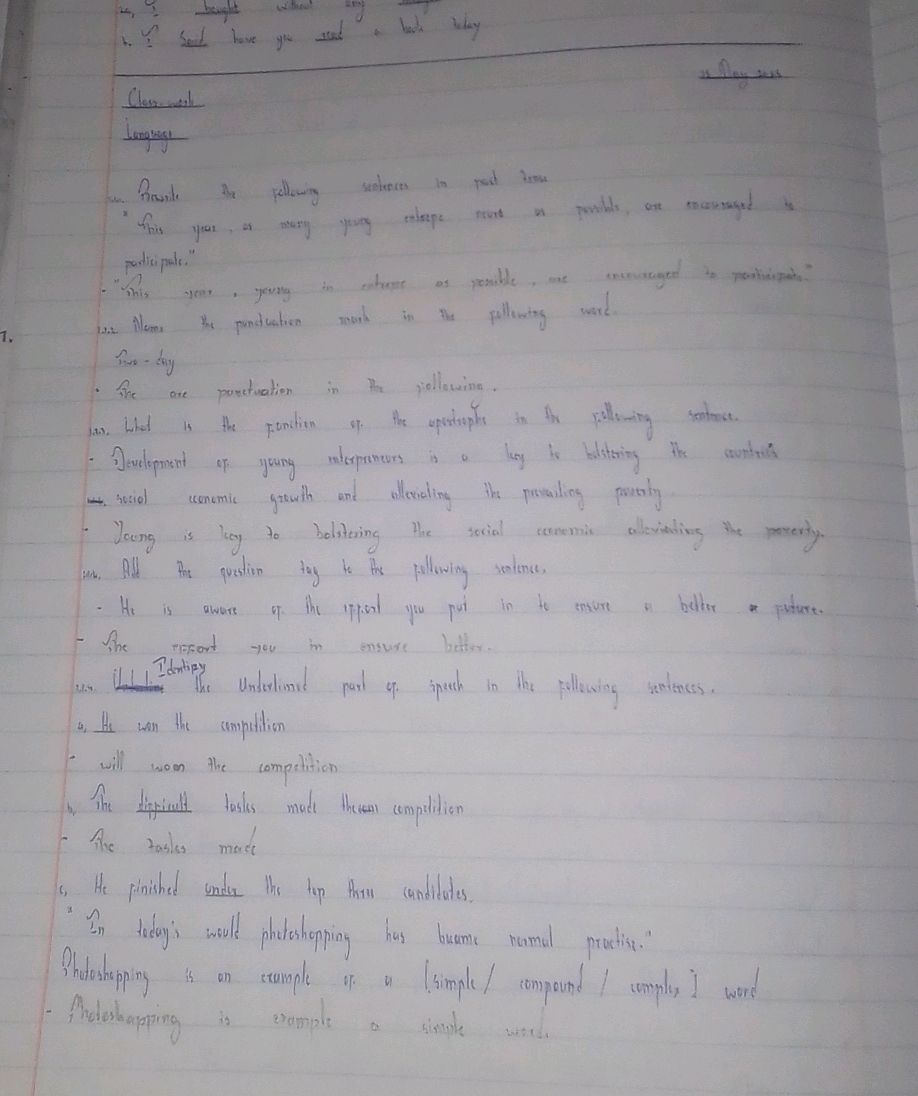 bought without any
b. I Said have you read a book today
25 May 2025
Class work
Language
Rewrite the following sentences in past tense
"This year, as many young entrepe neurs as possible, are encouraged to
participate."
- "This year, young in as possible, are encouraged to participate."
1.2.2. Name the punctuation mark in the following word.
Two-day
- The are punctuation in the following.
1.2.3. What is the function of the apostrophe in the following sentence.
- Development of young enterpreneurs is a key to bolstering the countries
social economic growth and alleviating the prevailing poverty
- Young is key to bolstering the social economic alleviating the poverty.
Add the question tag to the following sentence.
- He is aware of the effort you put in to ensure a better future.
- The effort you in ensure better.
Identify
the Underlined part of speech in the following sentences.
a, He won the competition
- will woon the competition
b, The difficult tasks made the competition
- The tasks made
c, He finished under the top three candidates.
"In today's would photoshopping has became normal practise."
Photoshopping is an example of a [simple / compound / complex] word
- Photoshopping is example a simple word.
1.